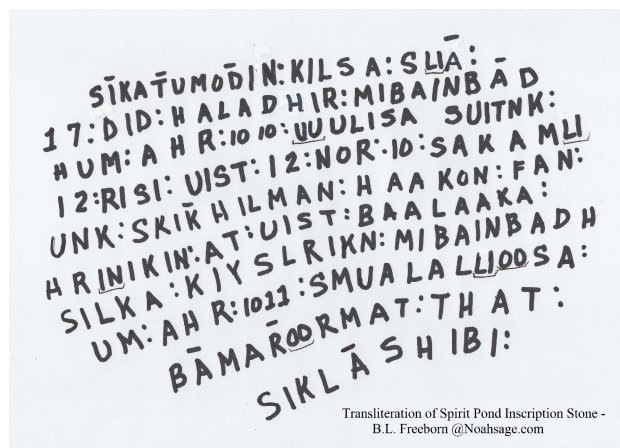 SĪKAT̄UMŌDIN:KILSA:SLIĀ:
17:DID:HALADHIR:MIBAINBĀD
HUM:AHR:1010:UUULISA SUITNK:
12:RISI:UIST:12:NOR·10:SAKAMLI
UNK:SKIK̄HILMAN:HAAKON:FAN:
HRINIKIN:AT:UIST:BAALAAKA:
SILKA:KIYSLRIKN:MIBAINBADH
UM:AHR:1011:SMUALALLIOOSA:
BĀMAR̄OORMAT:THAT:
SIKLĀSHIBI:
Transliteration of Spirit Pond Inscription Stone -
B.L. Freeborn @Noahsage.com